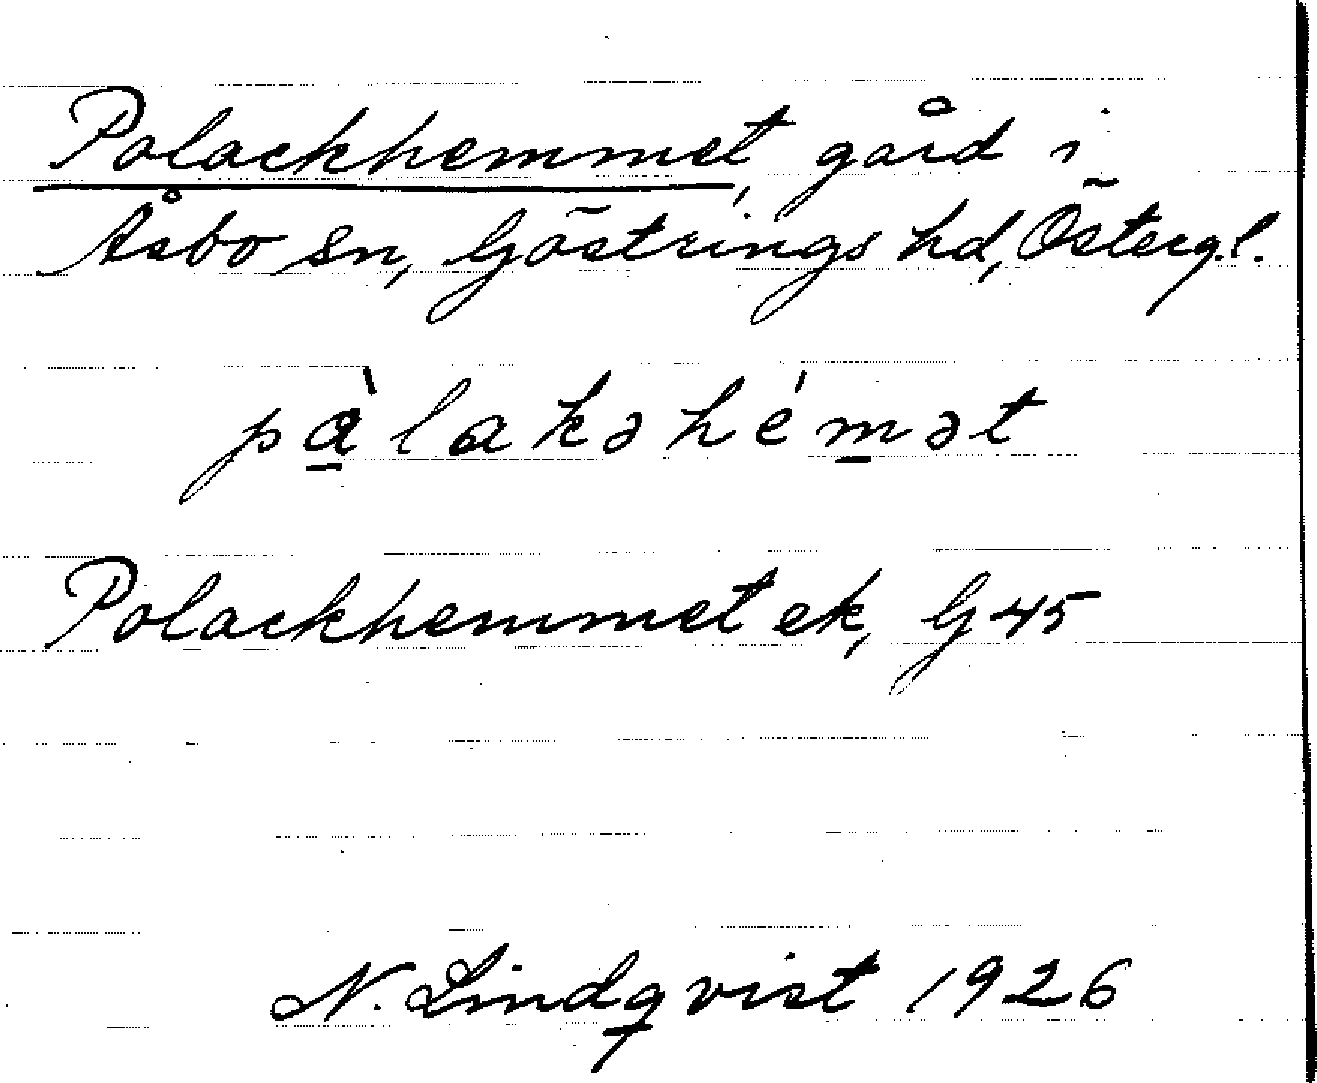 Polackhemmet, gård i
Åsbo sn, Göstrings hd, Östergl.
pà̲lakəhém̲ət
Polackhemmet ek, G 45
N. Lindqvist 1926